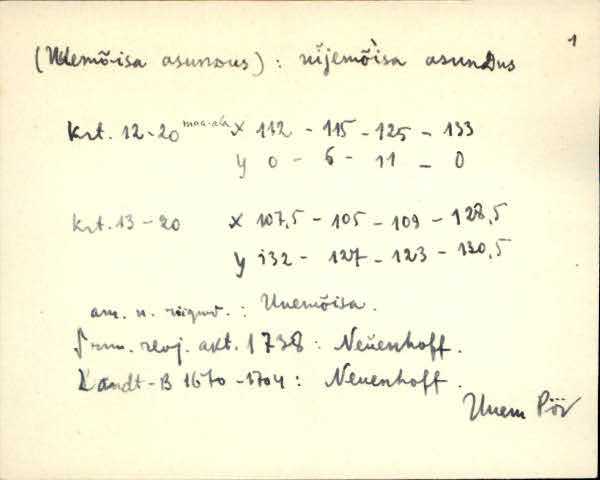 1
(Uuemõisa asundus) : ùijemõìsa asundus
Krt. 12-20 maa-ala x 112 - 115 - 125 - 133
y 0 - 6 - 11 - 0
Krt. 13-20 x 107,5 - 105 - 109 - 128,5
y 132 - 127 - 123 - 130,5
am. n. : Uuemõisa.
revj. akt. 1738 : Neüenhoff.
Landt-B 1670-1704 : Neuenhoff.